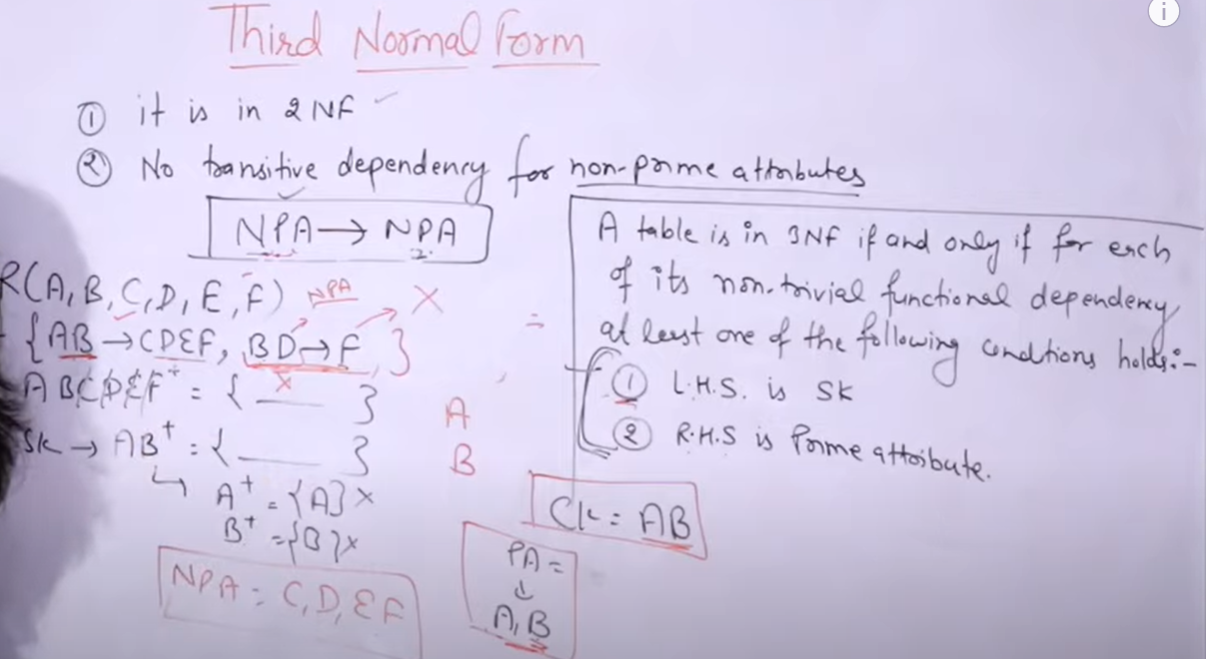 Third Normal Form
① it is in 2NF
② No transitive dependency for non-prime attributes
NPA → NPA
R(A, B, C, D, E, F) NPA X
{AB → CDEF, BD → F}
ABCDEF⁺ = { ___ }
SK → AB⁺ = { ___ }
A⁺ = {A} ×
B⁺ = {B} ×
NPA = C, D, E F
A
B
A table is in 3NF if and only if for each
of its non-trivial functional dependency
at least one of the following conditions holds:-
① L.H.S. is SK
② R.H.S is Prime attribute.
CK = AB
PA =
↓
A, B